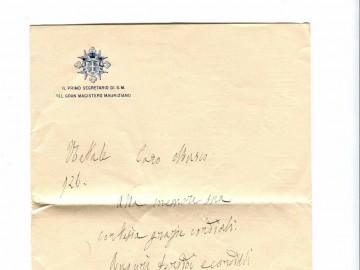 IL PRIMO SEGRETARIO DI S.M.
PEL GRAN MAGISTERO MAURIZIANO
Natale Caro
126.
alla memore sua
cortesia grazie cordiali.
Auguri fervidi e cordiali